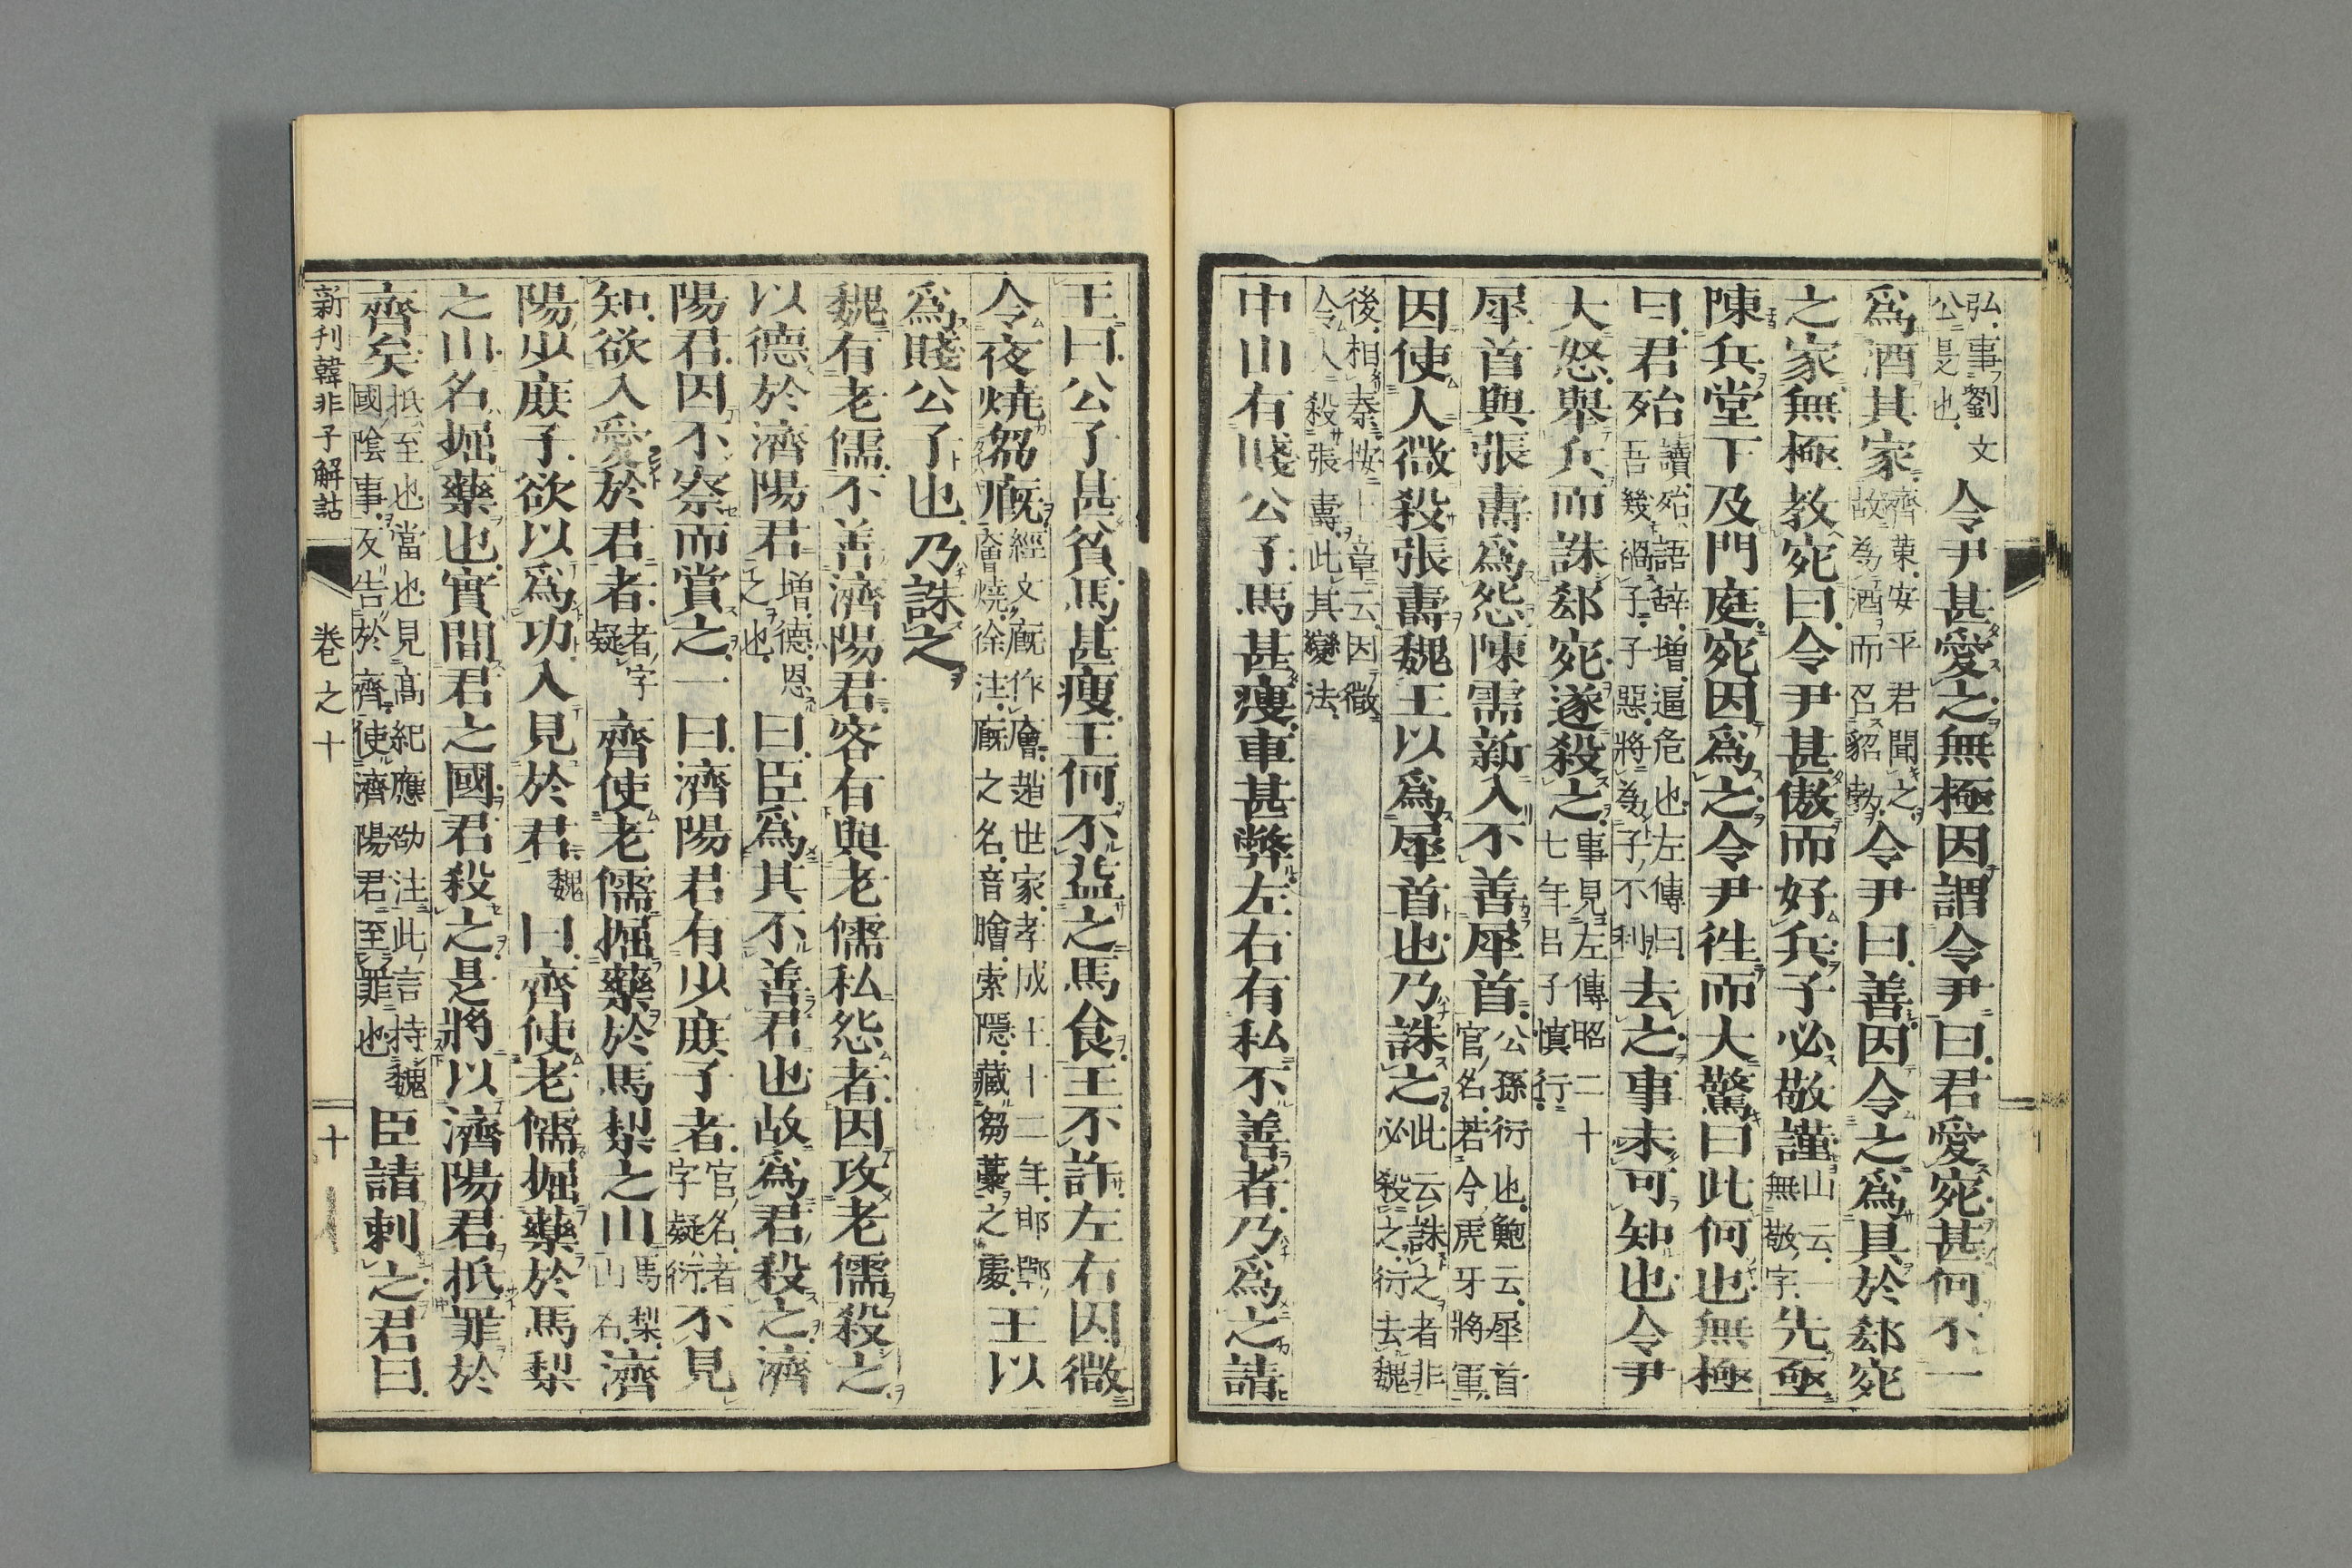 弘事劉文公是也令尹甚愛之無極因謂令尹曰君愛宛甚何不一
爲酒其家齊棄安平君聞之故為酒而召貂勃令尹曰善因令之爲具於郄宛
之家無極教宛曰令尹甚傲而好兵子必敬謹山云一無敬字先亟
陳兵堂下及門庭宛因爲之令尹往而大驚曰此何也無極
曰君殆讀殆語辞增逼危也左傳曰吾幾禍子子惡將為子不利去之事未可知也令尹
大怒舉兵而誅郄宛遂殺之事見左傳昭二十七年呂子慎行
犀首與張壽爲怨陳需新入不善犀首公孫衍也鮑云犀首官名若今虎牙將軍
因使人微殺張壽魏王以爲犀首也乃誅之此云誅之者非必殺之衍去魏
後相秦按上章云因微令人殺張壽此其變法
中山有賤公子馬甚瘦車甚弊左右有私不善者乃爲之請
王曰公子甚貧馬甚瘦王何不益之馬食王不許左右因微
令夜燒芻廐經文廐作廥趙世家孝成王十二年邯鄲廥燒徐注廐之名音膾索隱藏芻藁之處王以
爲賤公子也乃誅之
魏有老儒不善濟陽君客有與老儒私怨者因攻老儒殺之
以德於濟陽君增德恩之也曰臣爲其不善君也故爲君殺之濟
陽君因不察而賞之一曰濟陽君有少庶子者官名者字疑衍不見
知欲入愛於君者者字疑齊使老儒掘藥於馬梨之山馬梨山名濟
陽少庶子欲以爲功入見於君魏曰齊使老儒掘藥於馬梨
之山名掘藥也實間君之國君殺之是將以濟陽君抵罪於
齊矣抵至也當也見高紀應劭注此言持魏國陰事反告於齊使濟陽君至罪也臣請刺之君曰
新刊韓非子解詁 卷之十 十